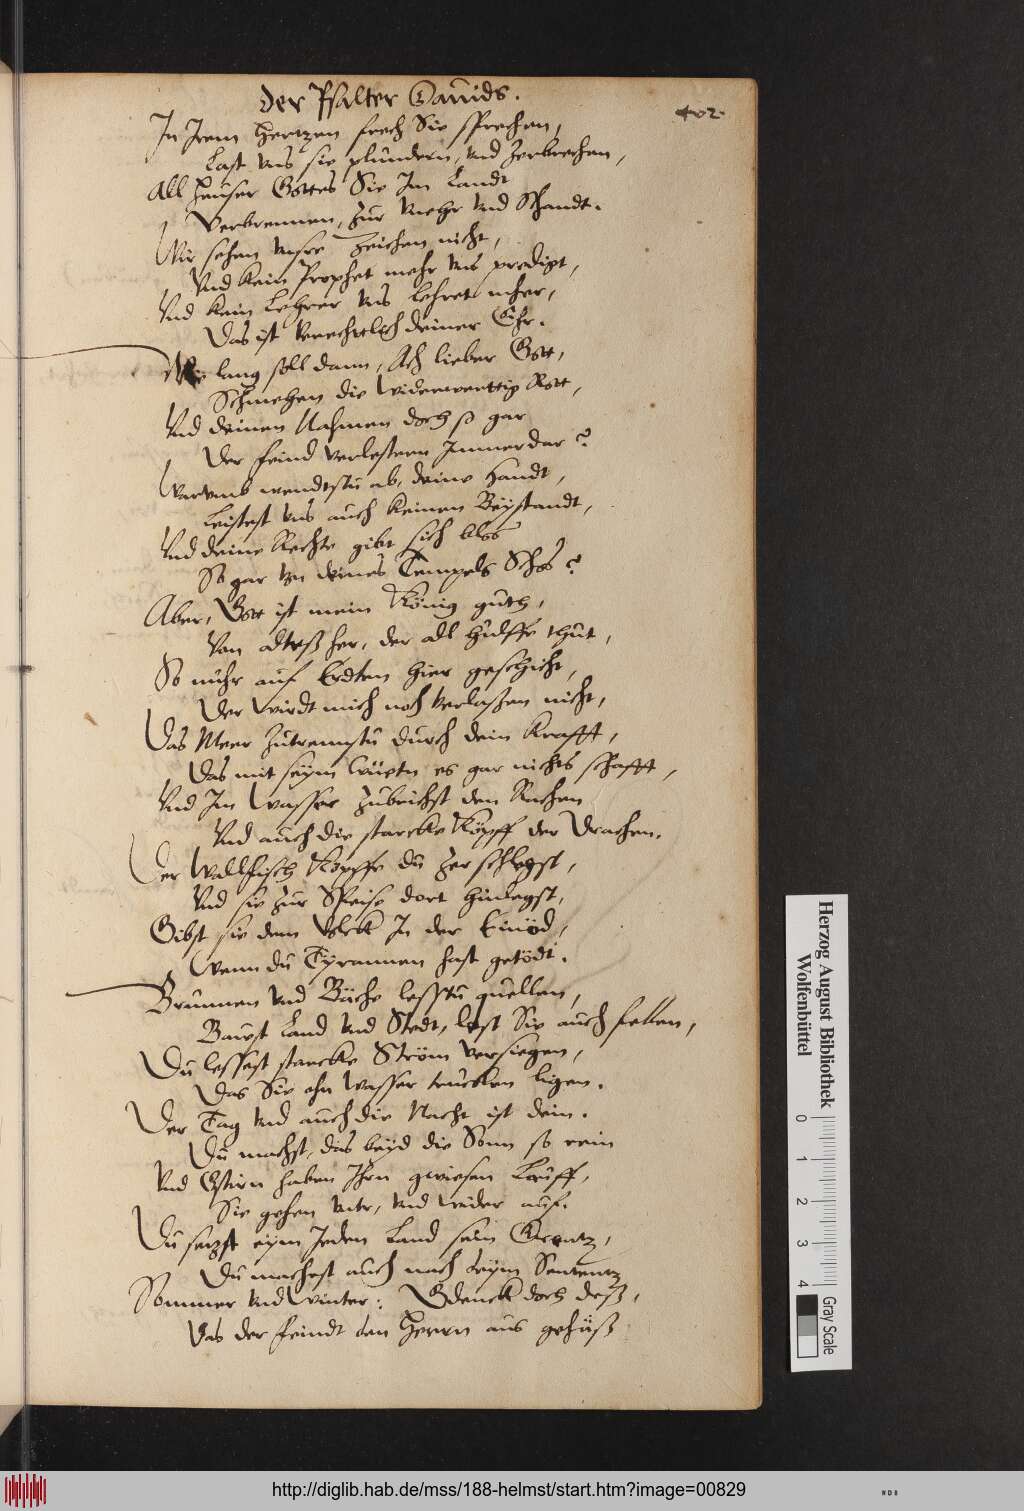 Der Psalter Dauids.
402.
In Irem Hertzen frech Sie sprechen,
Last vns sie plundern, vnd zerbrechen,
All Heuser Gottes Sie Im Landt
Verbrennen, zur vnehr vnd Schandt.
Wir sehen vnsre Zeichen nicht,
Vnd kein Prophet mehr vns predigt,
Vnd kein Lehrer vns lehret mher,
Das ist verechtlich deiner Ehr.
Wie lang soll dann, Ach lieber Gott,
Schmehen die Widerwerttig Rott,
Vnd deinen Nahmen doch so gar
Der feind verlestern Immerdar?
Warumb wendtstu ab, deine Handt,
Leistest vns auch keinen Beystandt,
Vnd deine Rechte gibt sich blos
So gar von deines Tempels Schos?
Aber, Gott ist mein König guth,
Von alters her, der all hülffe thut,
So nuhr auf Erdten hier geschicht,
Der wirdt mich noch verlaßen nicht,
Das Meer zutrennstu durch dein Krafft,
Das mit seym wüetn es gar nichts schafft,
Vnd Im Wasser zubrichst den Rachen
Vnd auch die starcke Köpff der Drachen.
Der Wallfisch Köpffe du zerschlegst,
Vnd sie zur Speise dort hinlegst,
Gibst sie dem Volck In der Einöd,
Wenn du Tyrannen hast getödt.
Brunnen vnd Bäche lesstu quellen,
Bawst Land vnd Stedt, lest Sie auch fellen,
Du lessest starcke Ström versiegen,
Das Sie ohn Wasser trucken ligen.
Der Tag vnd auch die Nacht ist dein.
Du machst, das beyd die Sonn so rein
Vnd Gstirn haben Ihrn gwiesen Lauff,
Sie gehen vntr, vnd wider auf.
Du setzst eym Jeden Land sein Grentz,
Du machest auch nach deym Sententz
Sommer vnd Winter: Gdenck doch deß,
Das der feindt den Herrn aus gehäß
Herzog August Bibliothek
Wolfenbüttel
0 1 2 3 4
Gray Scale
http://diglib.hab.de/mss/188-helmst/start.htm?image=00829